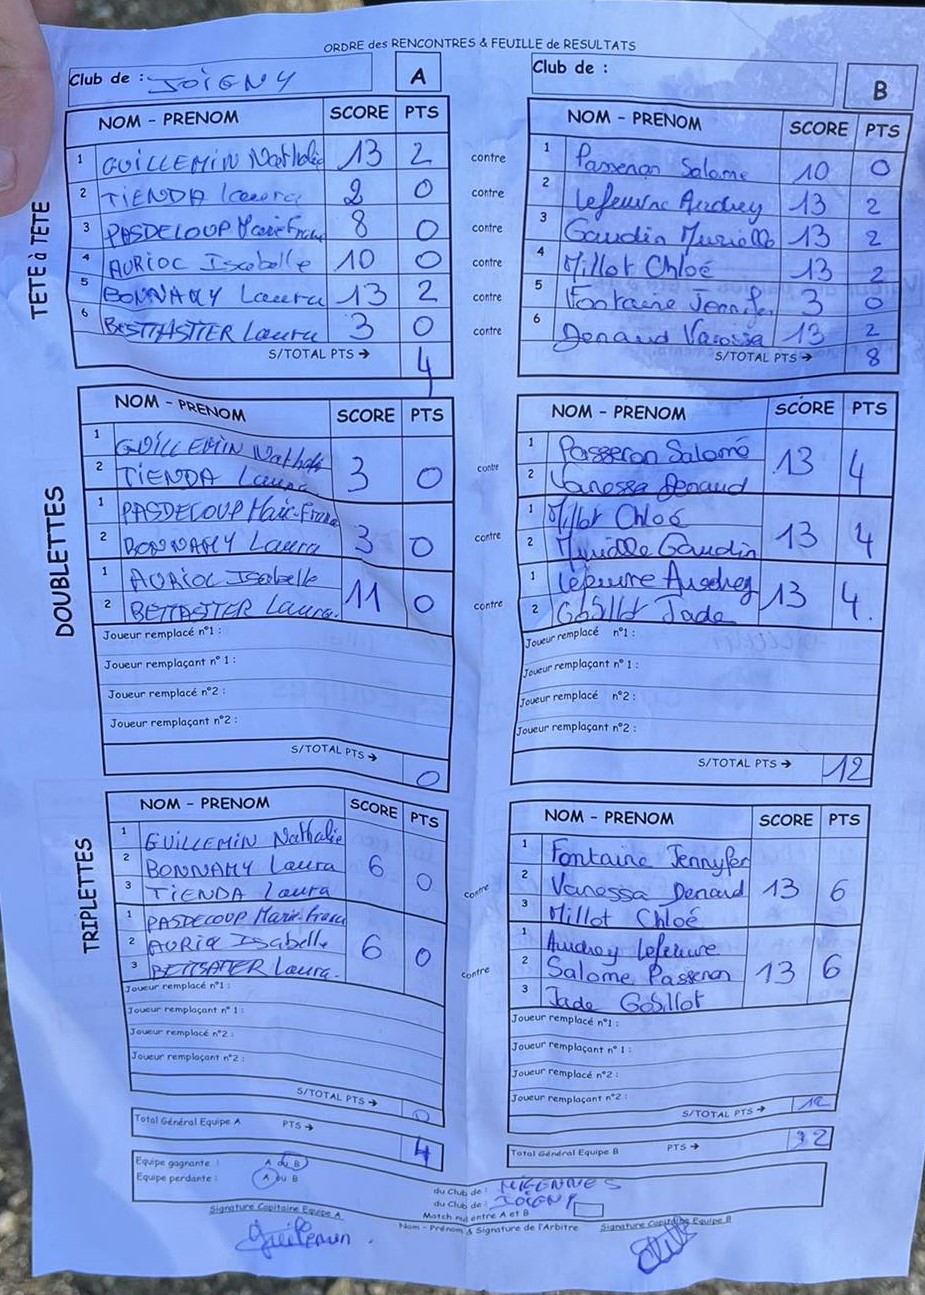 ORDRE des RENCONTRES & FEUILLE de RESULTATS
Club de : JOIGNY A
Club de : B
TETE à TETE
NOM - PRENOM SCORE PTS NOM - PRENOM SCORE PTS
1 GUILLEMIN Nathalie 13 2 contre 1 Passeron Salome 10 0
2 TIENDA Laura 2 0 contre 2 Lefeuvre Audrey 13 2
3 PASDELOUP Marie-France 8 0 contre 3 Gaudin Murielle 13 2
4 AURIOC Isabelle 10 0 contre 4 Millot Chloé 13 2
5 BONNAMY Laura 13 2 contre 5 Fontaine Jennifer 3 0
6 Laura 3 0 contre 6 Denaud Vanessa 13 2
S/TOTAL PTS → 4 S/TOTAL PTS → 8
DOUBLETTES
NOM - PRENOM SCORE PTS NOM - PRENOM SCORE PTS
1 GUILLEMIN Nathalie 1 Passeron Salomé
2 TIENDA Laura 3 0 contre 2 Vanessa Denaud 13 4
1 PASDELOUP Marie-France 1 Millot Chloé
2 BONNAMY Laura 3 0 contre 2 Murielle Gaudin 13 4
1 AURIOC Isabelle 1 Lefeuvre Audrey
2 Laura. 11 0 contre 2 Gobillot Jade 13 4.
Joueur remplacé n°1 : Joueur remplacé n°1 :
Joueur remplaçant n° 1 : Joueur remplaçant n° 1 :
Joueur remplacé n°2 : Joueur remplacé n°2 :
Joueur remplaçant n°2 : Joueur remplaçant n°2 :
S/TOTAL PTS → 0 S/TOTAL PTS → 12
TRIPLETTES
NOM - PRENOM SCORE PTS NOM - PRENOM SCORE PTS
1 GUILLEMIN Nathalie 1 Fontaine Jennyfer
2 BONNAMY Laura 6 0 contre 2 Vanessa Denaud 13 6
3 TIENDA Laura 3 Millot Chloé
1 PASDELOUP Marie-France 1 Audrey Lefeuvre
2 Isabelle 6 0 contre 2 Salome Passeron 13 6
3 Laura. 3 Jade Gobillot
Joueur remplacé n°1 : Joueur remplacé n°1 :
Joueur remplaçant n° 1 : Joueur remplaçant n° 1 :
Joueur remplacé n°2 : Joueur remplacé n°2 :
Joueur remplaçant n°2 : Joueur remplaçant n°2 :
S/TOTAL PTS → 0 S/TOTAL PTS → 12
Total Général Equipe A PTS → 4 Total Général Equipe B PTS → 32
Equipe gagnante : A ou B du Club de : MIGENNES
Equipe perdante : A ou B du Club de : JOIGNY
Match nul entre A et B
Signature Capitaine Equipe A Nom - Prénom & Signature de l'Arbitre Signature Capitaine Equipe B